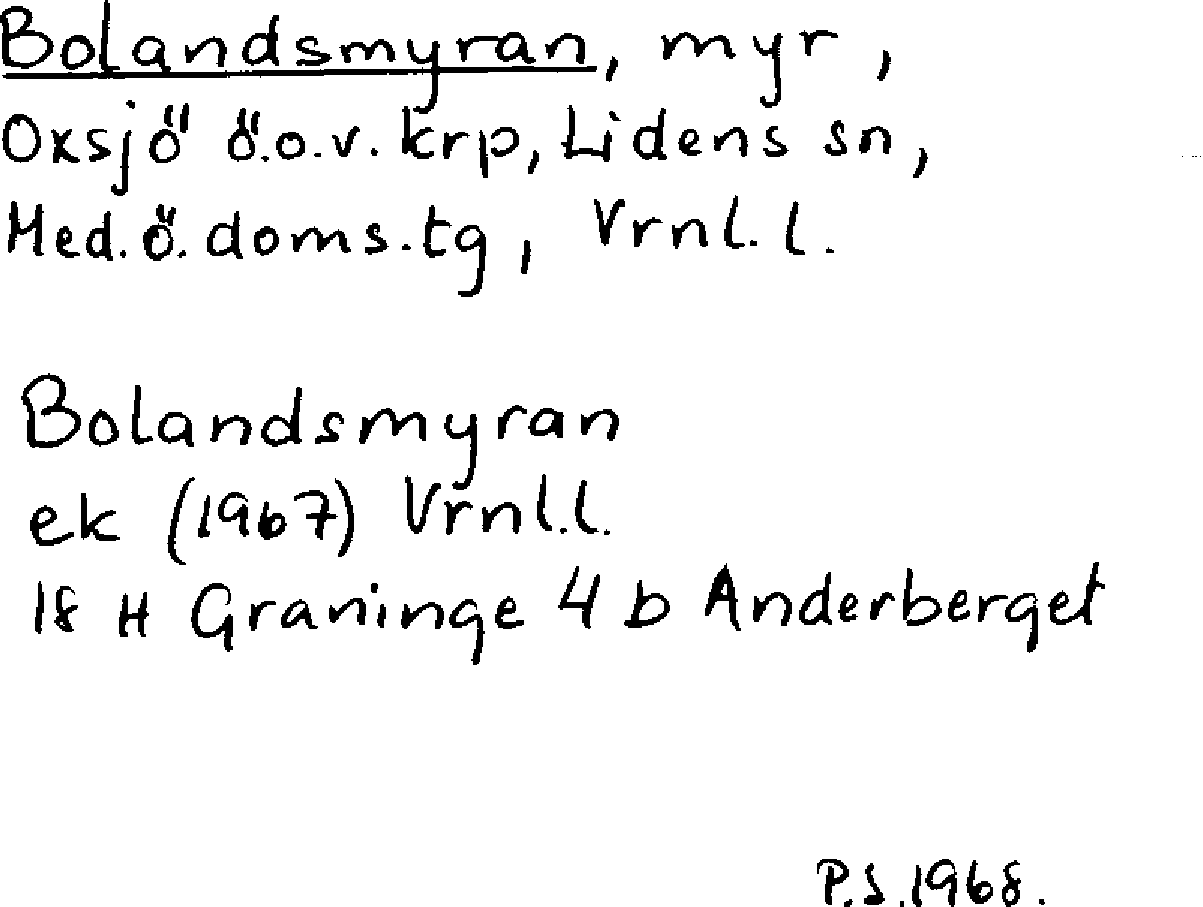 Bolandsmyran, myr,
Oxsjö ö.o.v. krp, Lidens sn,
Med. ö. doms.tg, Vrnl. l.
Bolandsmyran
ek (1967) Vrnl.l.
18 H Graninge 4 b Anderberget
P.S. 1968.